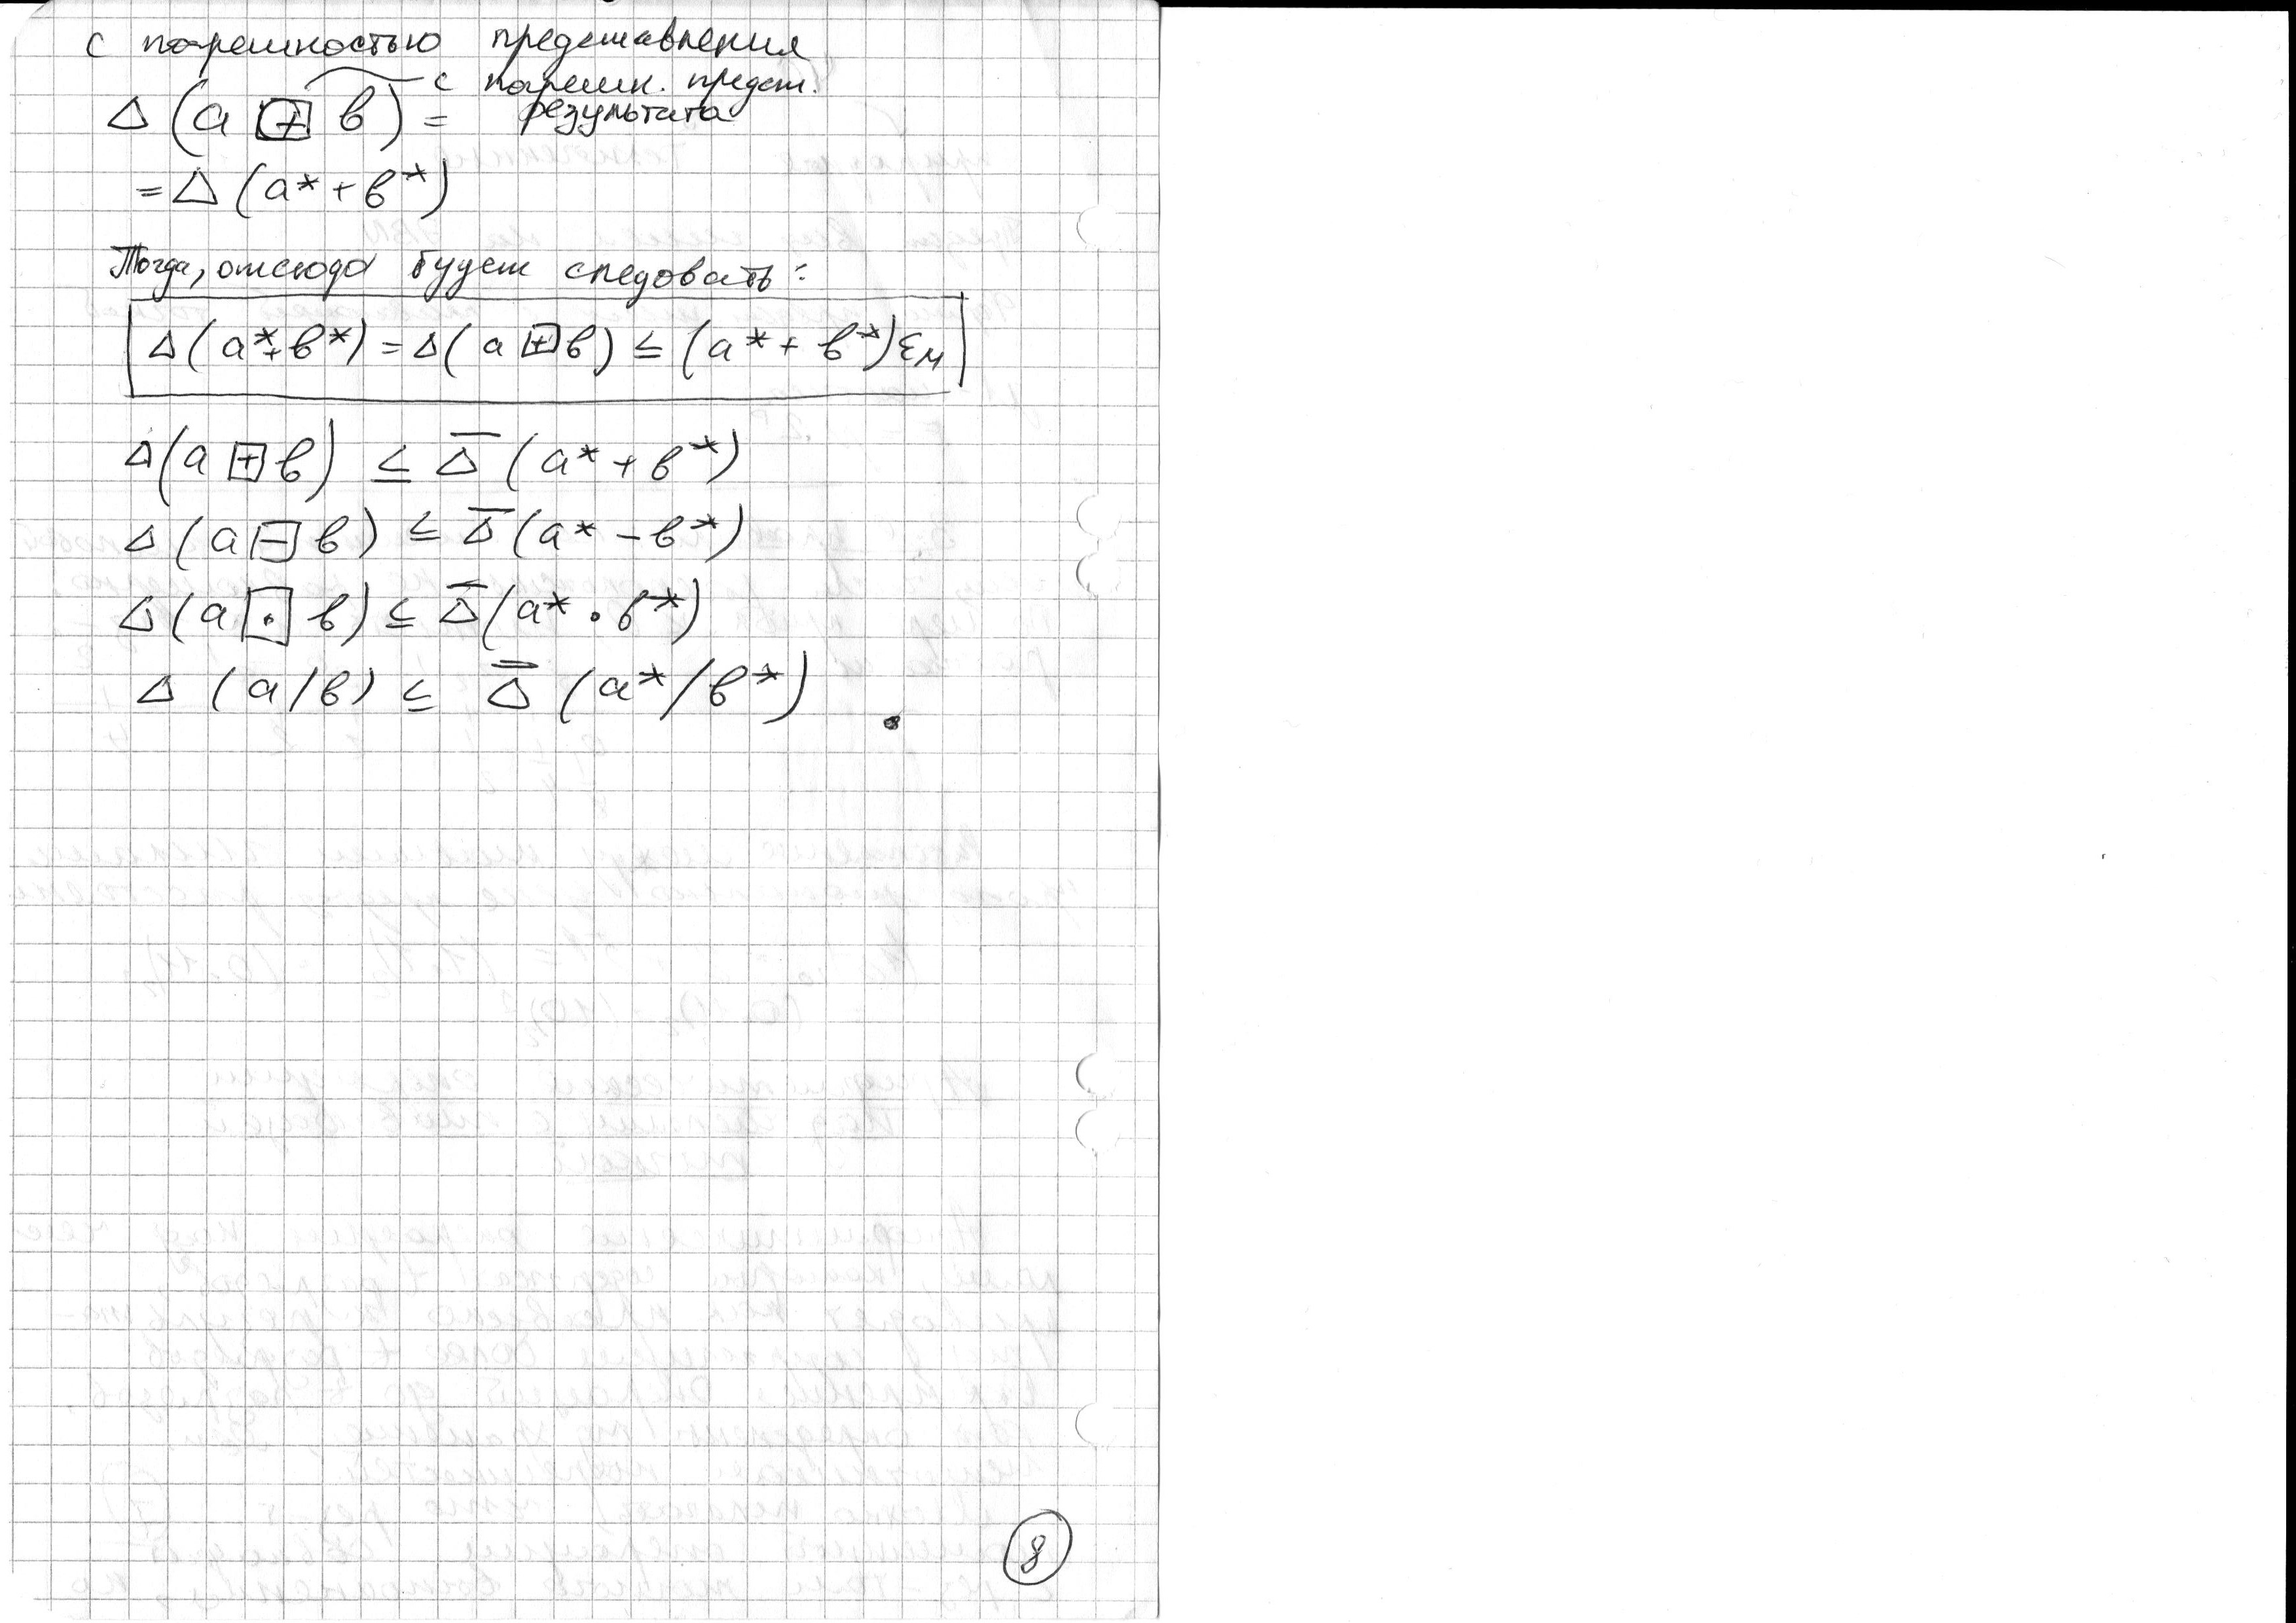 с погрешностью представления
с погрешн. предст.
Δ(a ⊞ в) = результата
= Δ(a* + в*)
Тогда, отсюда будет следовать:
Δ(a* + в*) = Δ(a ⊞ в) ≤ (a* + в*)εм
Δ(a ⊞ в) ≤ Δ̅(a* + в*)
Δ(a ⊟ в) ≤ Δ̅(a* − в*)
Δ(a ⊡ в) ≤ Δ̅(a* · в*)
Δ(a/в) ≤ Δ̅(a*/в*).
8